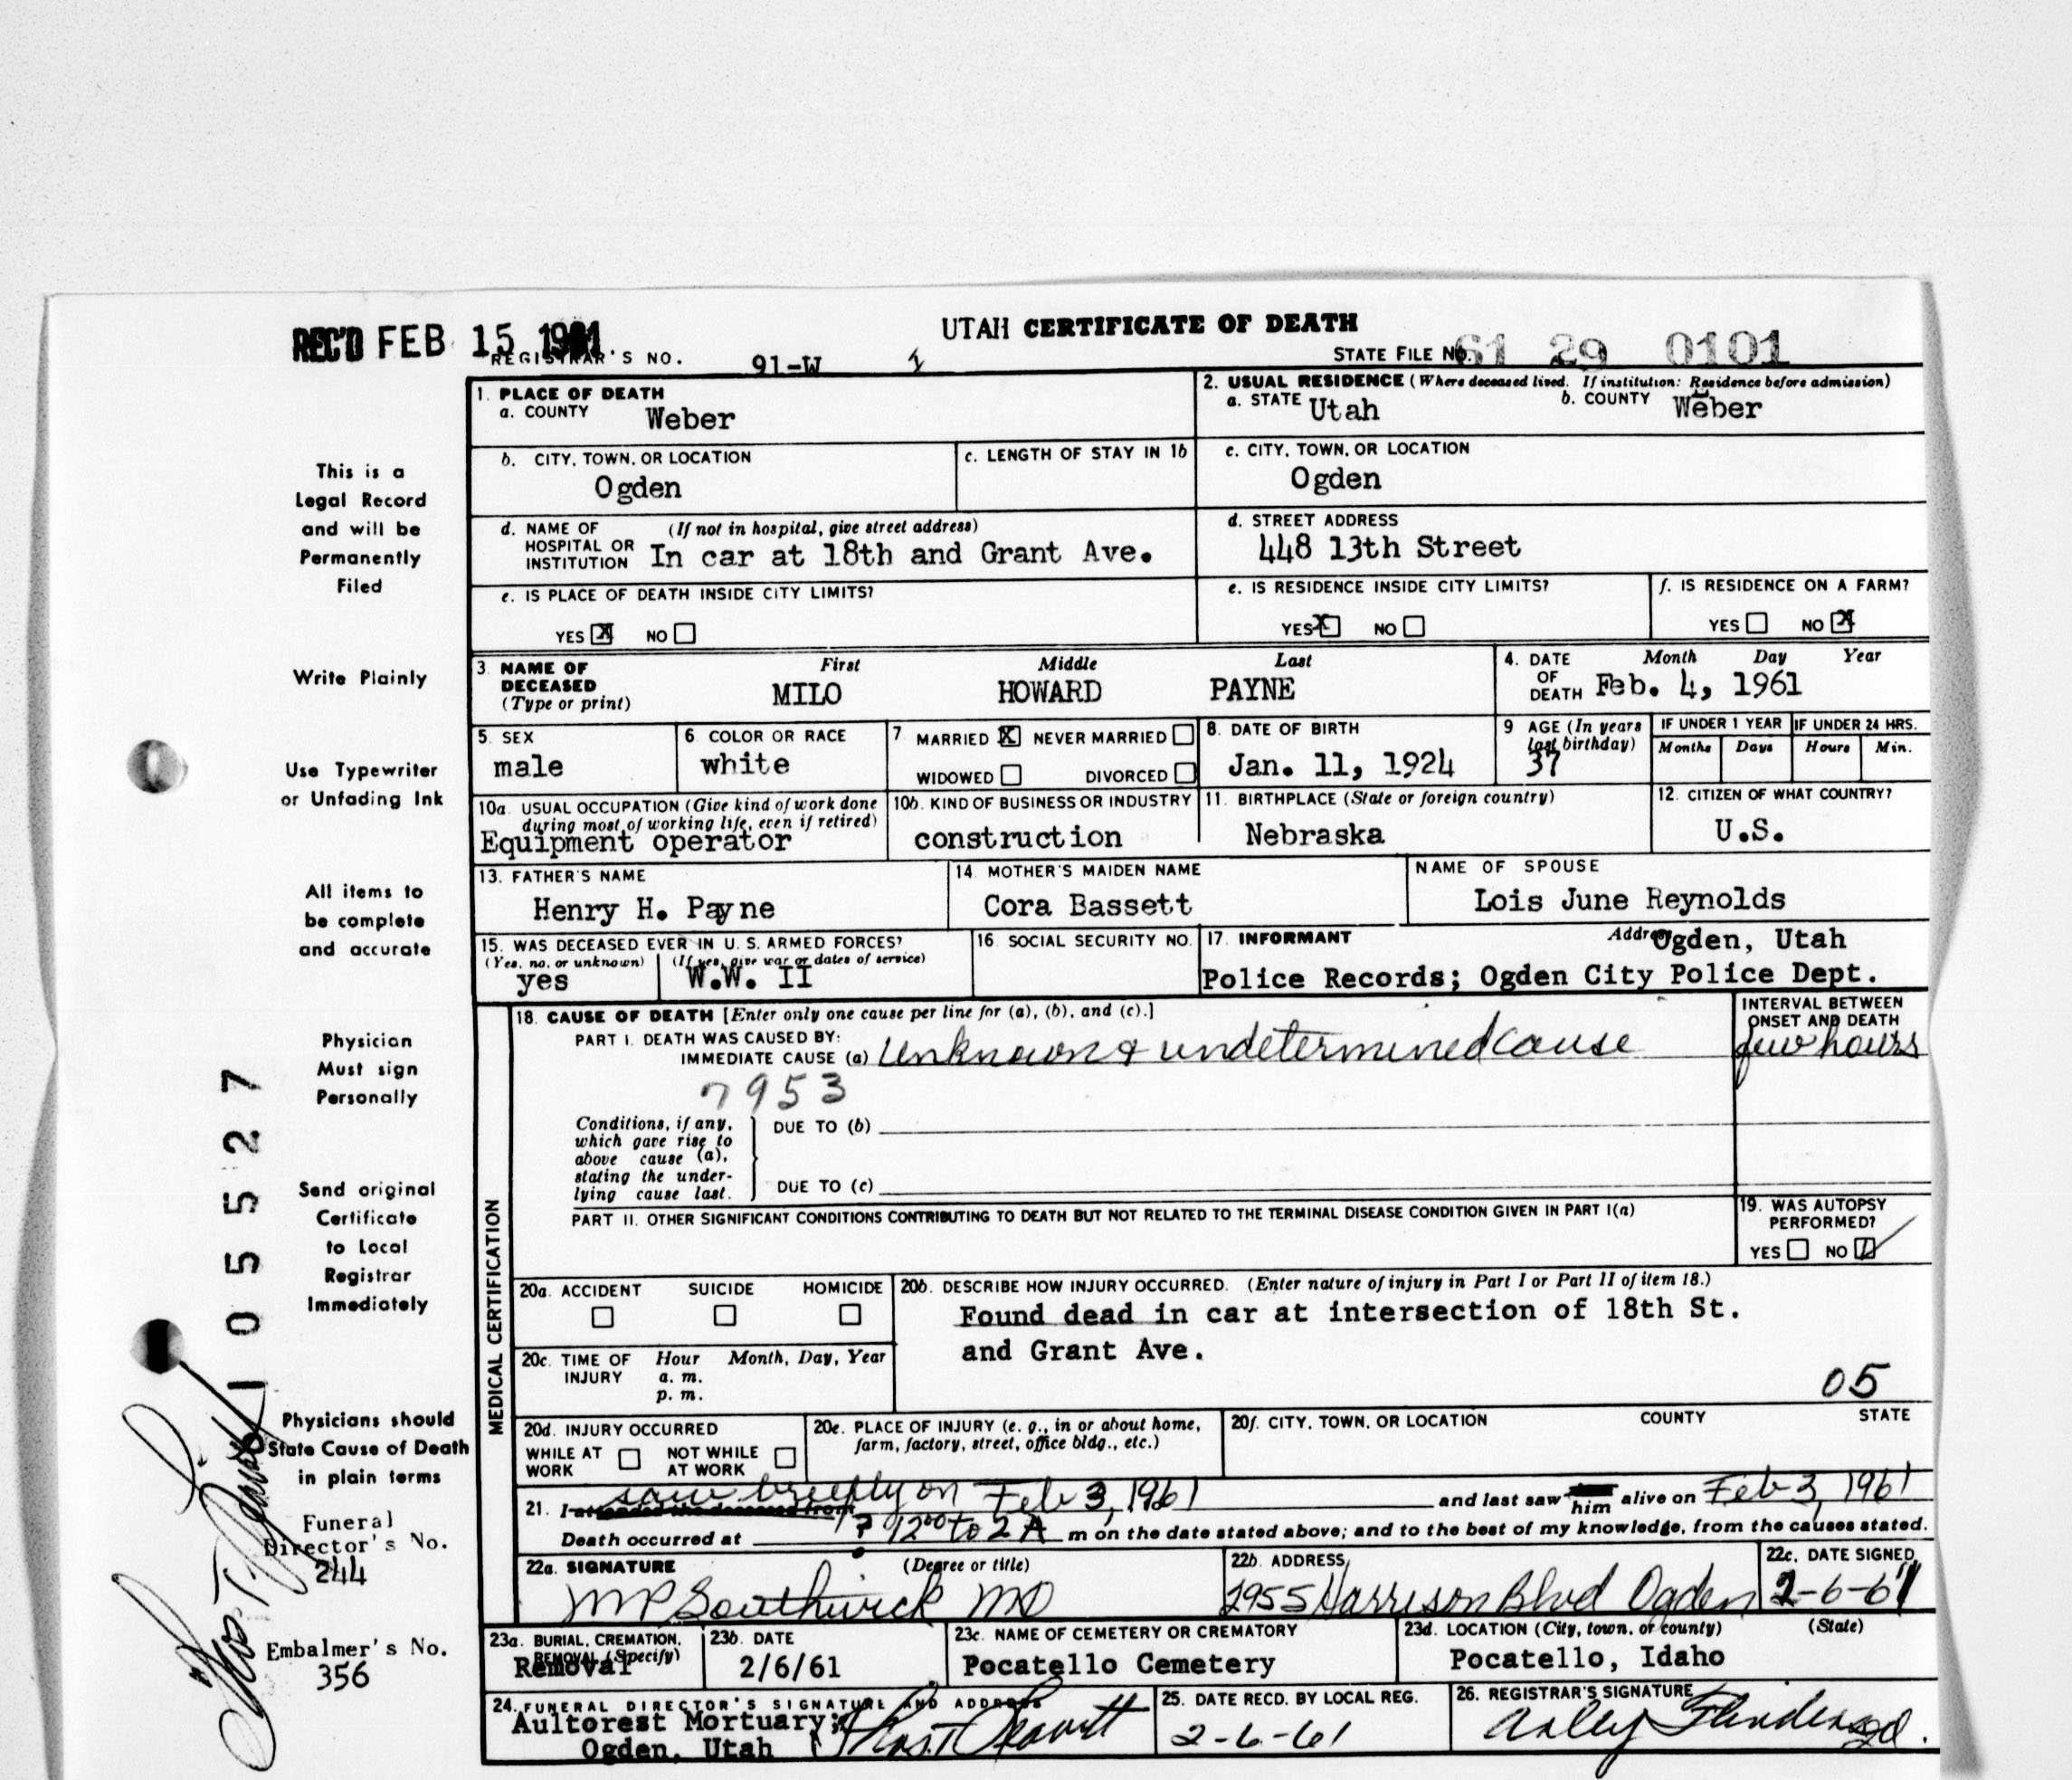 REC'D FEB 15 1961
UTAH CERTIFICATE OF DEATH
REGISTRAR'S NO. 91-W
STATE FILE NO. 61 29 0101
1. PLACE OF DEATH
a. COUNTY Weber
2. USUAL RESIDENCE (Where deceased lived. If institution: Residence before admission)
a. STATE Utah b. COUNTY Weber
b. CITY, TOWN, OR LOCATION
Ogden
c. LENGTH OF STAY IN 1b
c. CITY, TOWN, OR LOCATION
Ogden
d. NAME OF HOSPITAL OR INSTITUTION (If not in hospital, give street address)
In car at 18th and Grant Ave.
d. STREET ADDRESS
448 13th Street
e. IS PLACE OF DEATH INSIDE CITY LIMITS?
YES X NO
e. IS RESIDENCE INSIDE CITY LIMITS?
YES X NO
f. IS RESIDENCE ON A FARM?
YES NO X
3. NAME OF DECEASED (Type or print)
First Middle Last
MILO HOWARD PAYNE
4. DATE OF DEATH Month Day Year
Feb. 4, 1961
5. SEX
male
6. COLOR OR RACE
white
7 MARRIED X NEVER MARRIED
WIDOWED DIVORCED
8. DATE OF BIRTH
Jan. 11, 1924
9 AGE (In years last birthday)
37
IF UNDER 1 YEAR
Months Days
IF UNDER 24 HRS.
Hours Min.
10a. USUAL OCCUPATION (Give kind of work done during most of working life, even if retired)
Equipment operator
10b. KIND OF BUSINESS OR INDUSTRY
construction
11. BIRTHPLACE (State or foreign country)
Nebraska
12. CITIZEN OF WHAT COUNTRY?
U.S.
13. FATHER'S NAME
Henry H. Payne
14. MOTHER'S MAIDEN NAME
Cora Bassett
NAME OF SPOUSE
Lois June Reynolds
15. WAS DECEASED EVER IN U. S. ARMED FORCES?
(Yes, no, or unknown) (If yes, give war or dates of service)
yes W.W. II
16. SOCIAL SECURITY NO.
17. INFORMANT Address Ogden, Utah
Police Records; Ogden City Police Dept.
18. CAUSE OF DEATH [Enter only one cause per line for (a), (b), and (c).]
PART I. DEATH WAS CAUSED BY:
IMMEDIATE CAUSE (a) Unknown & undetermined cause
INTERVAL BETWEEN ONSET AND DEATH
few hours
7953
Conditions, if any, which gave rise to above cause (a), stating the underlying cause last.
DUE TO (b)
DUE TO (c)
PART II. OTHER SIGNIFICANT CONDITIONS CONTRIBUTING TO DEATH BUT NOT RELATED TO THE TERMINAL DISEASE CONDITION GIVEN IN PART I(a)
19. WAS AUTOPSY PERFORMED?
YES NO
MEDICAL CERTIFICATION
20a. ACCIDENT SUICIDE HOMICIDE
20b. DESCRIBE HOW INJURY OCCURRED. (Enter nature of injury in Part I or Part II of item 18.)
Found dead in car at intersection of 18th St.
and Grant Ave.
05
20c. TIME OF INJURY Hour Month, Day, Year
a. m.
p. m.
20d. INJURY OCCURRED
WHILE AT WORK NOT WHILE AT WORK
20e. PLACE OF INJURY (e. g., in or about home, farm, factory, street, office bldg., etc.)
20f. CITY, TOWN, OR LOCATION COUNTY STATE
21. I attended the deceased from saw briefly on Feb 3, 1961 and last saw him alive on Feb 3, 1961
Death occurred at ? 12 00 to 2 A m on the date stated above; and to the best of my knowledge, from the causes stated.
22a. SIGNATURE (Degree or title)
MP Southwick MD
22b. ADDRESS
2955 Harrison Blvd Ogden
22c. DATE SIGNED
2-6-61
23a. BURIAL, CREMATION, REMOVAL (Specify)
Removal
23b. DATE
2/6/61
23c. NAME OF CEMETERY OR CREMATORY
Pocatello Cemetery
23d. LOCATION (City, town, or county) (State)
Pocatello, Idaho
24. FUNERAL DIRECTOR'S SIGNATURE AND ADDRESS
Aultorest Mortuary;
Ogden, Utah
25. DATE RECD. BY LOCAL REG.
2-6-61
26. REGISTRAR'S SIGNATURE
This is a
Legal Record
and will be
Permanently
Filed
Write Plainly
Use Typewriter
or Unfading Ink
All items to
be complete
and accurate
Physician
Must sign
Personally
Send original
Certificate
to Local
Registrar
Immediately
Physicians should
State Cause of Death
in plain terms
Funeral
Director's No.
244
Embalmer's No.
356
105527